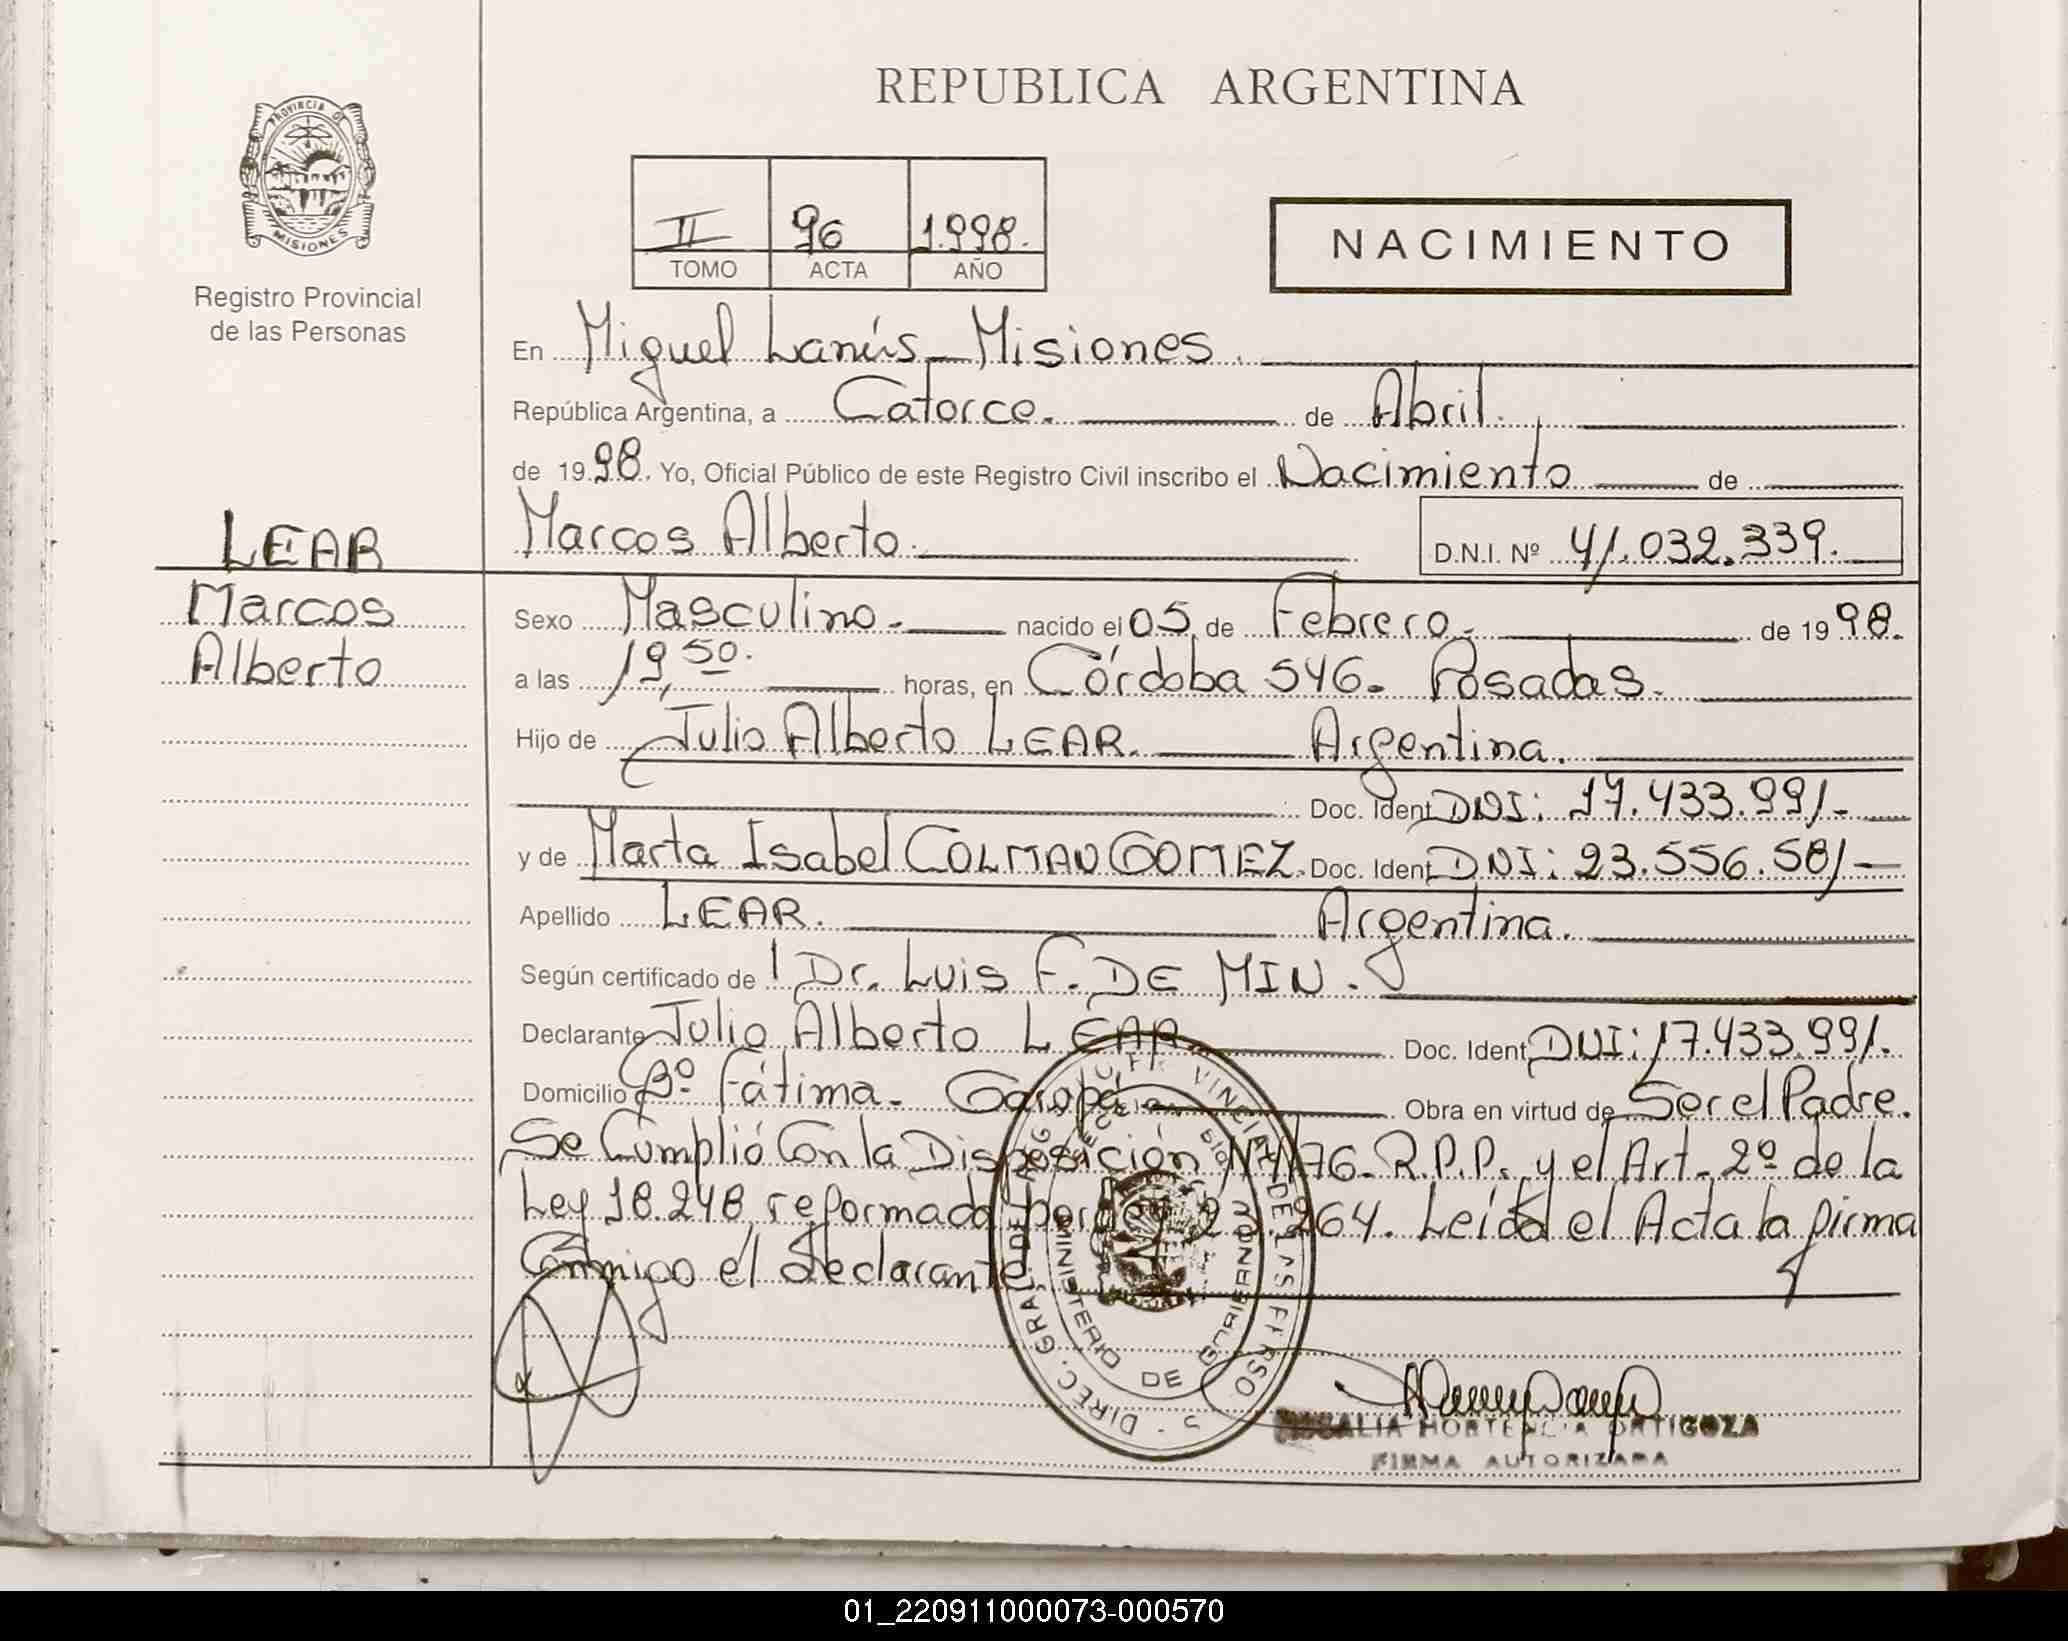 REPUBLICA ARGENTINA
PROVINCIA DE
MISIONES
Registro Provincial
de las Personas
II 96 1.998.
TOMO ACTA AÑO
NACIMIENTO
En Miguel Lanús - Misiones.
República Argentina, a Catorce. de Abril.
de 19 98. Yo, Oficial Público de este Registro Civil inscribo el Nacimiento de
Marcos Alberto. D.N.I. Nº 41.032.339.
LEAR
Marcos
Alberto
Sexo Masculino.- nacido el 05 de Febrero.- de 19 98.
a las 19,50. horas, en Córdoba 546. Posadas.
Hijo de Julio Alberto LEAR. Argentina.
Doc. Ident. DNI: 17.433.991-
y de Marta Isabel COLMAN GOMEZ. Doc. Ident. DNI: 23.556.581-
Apellido LEAR. Argentina.
Según certificado de 1 Dr. Luis F. DE MIN.
Declarante Julio Alberto LEAR. Doc. Ident. DNI: 17.433.991.
Domicilio Bº Fátima. Garupá Obra en virtud de Ser el Padre.
Se Cumplió Con la Disposición Nº 1/76. R.P.P. y el Art. 2º de la
Ley 18.248, reformada por Ley 264. Leída el Acta la firma
Conmigo el declarante
MINISTERIO DE
DIREC. GRAL. DEL
ORTIGOZA
FIRMA AUTORIZADA
01_220911000073-000570